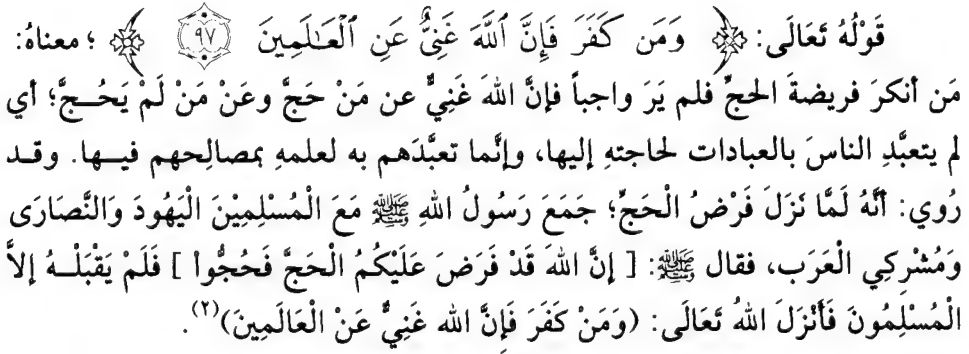 قَوْلُهُ تَعَالَى: ﴿ وَمَن كَفَرَ فَإِنَّ ٱللَّهَ غَنِىٌّ عَنِ ٱلْعَـٰلَمِينَ ٩٧ ﴾ ؛ معناهُ:
مَن أنكرَ فريضةَ الحجِّ فلم يَرَ واجباً فإنَّ اللهَ غَنِيٌّ عن مَنْ حَجَّ وعَنْ مَنْ لَمْ يَحُـجَّ؛ أي
لم يتعبَّدِ الناسَ بالعبادات لحاجتهِ إليها، وإنَّما تعبَّدَهم به لعلمهِ بمصالِحهم فيـها. وقـد
رُوي: أنَّهُ لَمَّا نَزَلَ فَرْضُ الْحَجِّ؛ جَمَعَ رَسُولُ اللهِ ﷺ مَعَ الْمُسْلِمِيْنَ الْيَهُودَ وَالنَّصَارَى
وَمُشْرِكِي الْعَرَب، فقال ﷺ: [ إنَّ اللهَ قَدْ فَرَضَ عَلَيْكُمُ الْحَجَّ فَحُجُّواْ ] فَلَمْ يَقْبَلْـهُ إلاَّ
الْمُسْلِمُونَ فَأَنْزَلَ اللهُ تَعَالَى: (وَمَنْ كَفَرَ فَإِنَّ الله غَنِيٌّ عَنْ الْعَالَمِينَ)(٢).